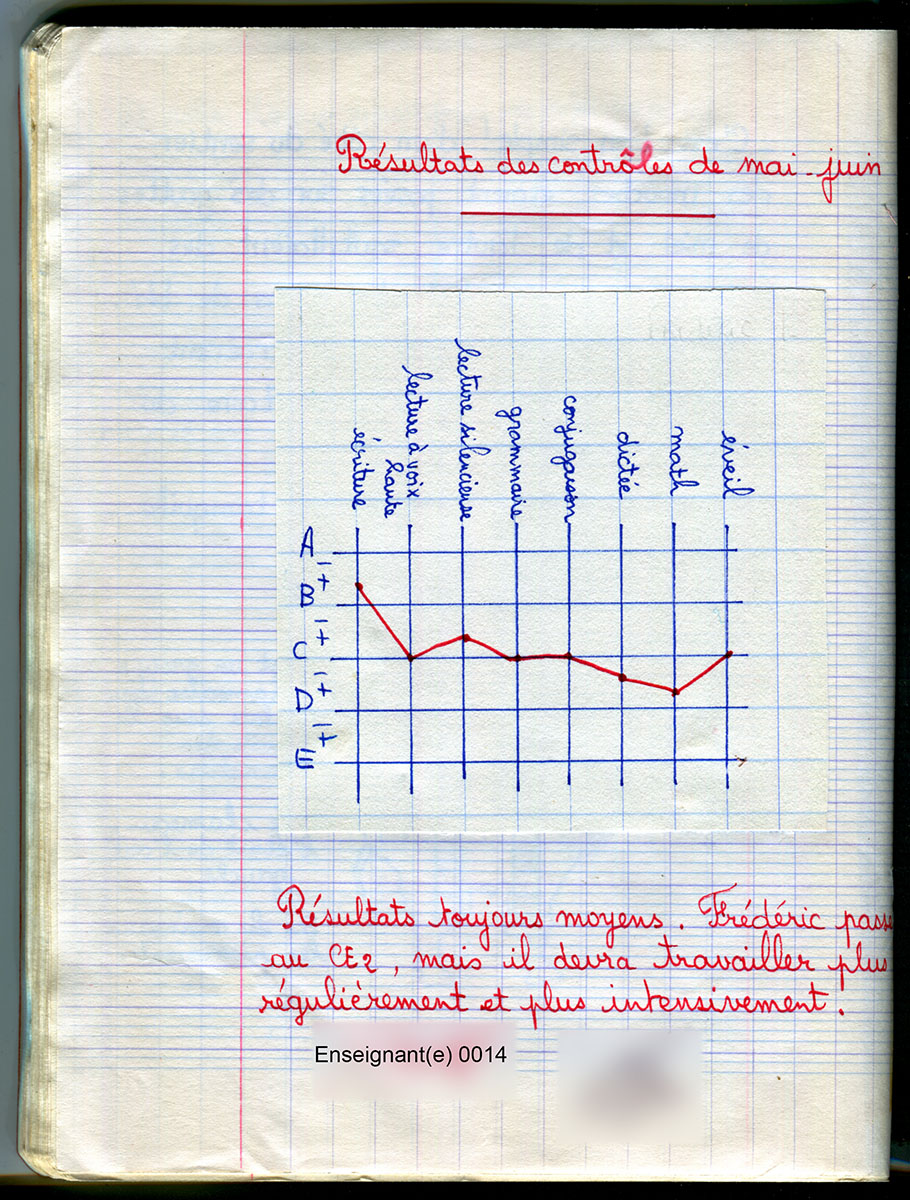 Résultats des contrôles de mai-juin
écriture
lecture à voix
haute
lecture silencieuse
grammaire
conjugaison
dictée
math
éveil
A
1+
B
1+
C
1+
D
1+
E
Résultats toujours moyens. Frédéric passe
au CE2, mais il devra travailler plus
régulièrement et plus intensivement.
Enseignant(e) 0014